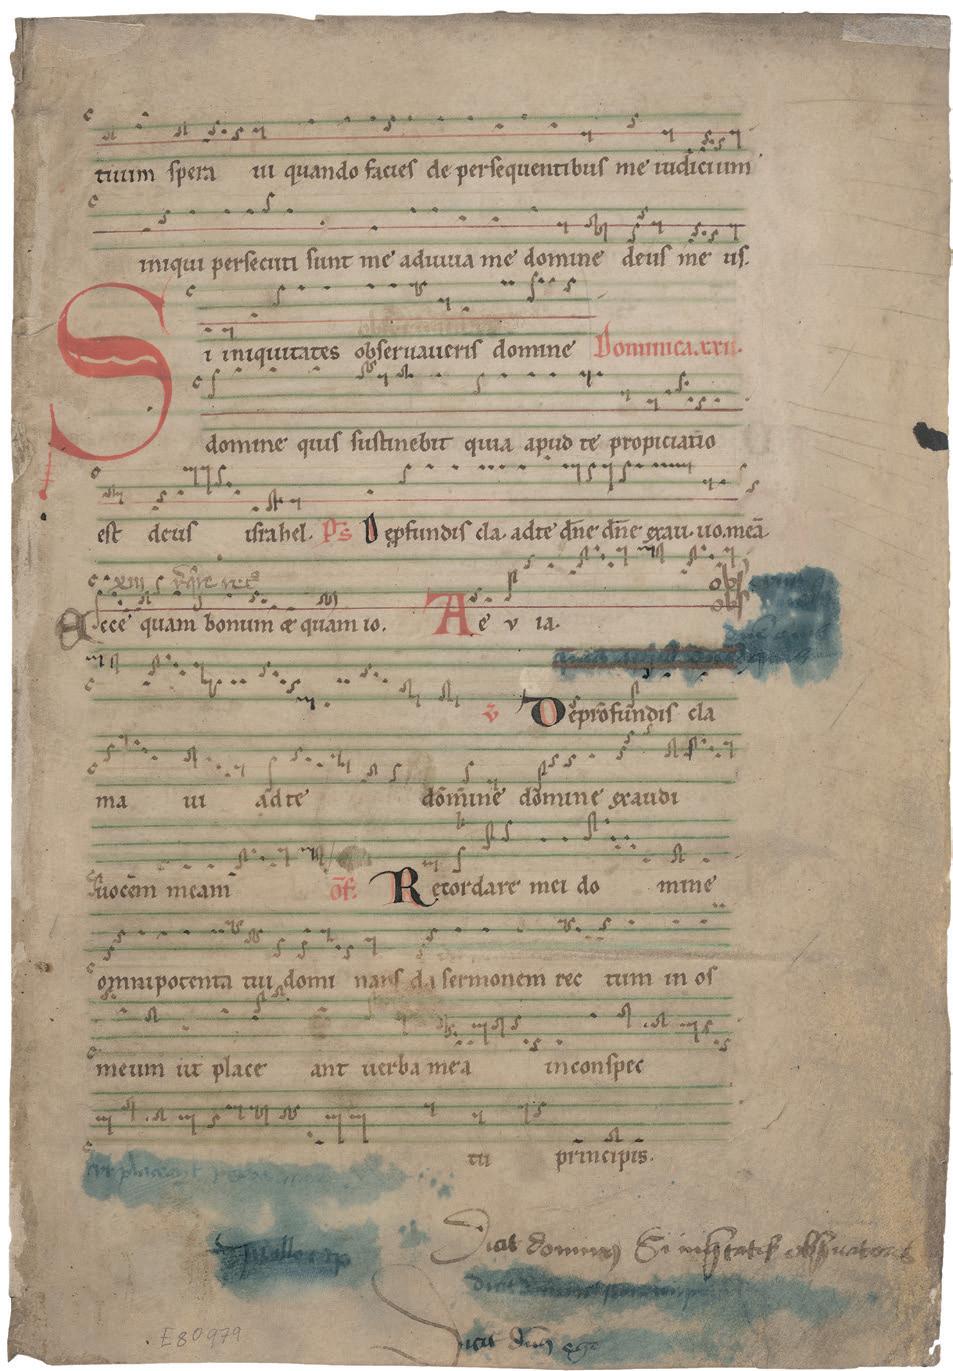 tuum spera ui quando facies de persequentibus me iudicium
iniqui persecuti sunt me adiuua me domine deus me us.
Si iniquitates obseruaueris domine Dominica.xxii.
domine quis sustinebit quia apud te propiciatio
est deus israhel. Ps Deꝓfundis cla. adte dn̄e dn̄e exau. uo.meā
Ecce quam bonum & quam io. Ae v ia.
v Deprofundis cla
ma ui adte domine domine exaudi
uocem meam of. Recordare mei do mine
omnipotentia tui domi nans da sermonem rec tum in os
meum ut place ant uerba mea inconspec
tu principis.
ut placeant
Dicit dominus Si
E80979